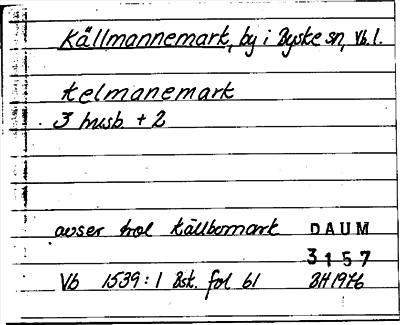 Källmannemark, by i Byske sn, Vb. l.
kelmanemark
3 husb. + 2
avser trol Källbomark DAUM
3157
Vb 1539:1 Bst. fol 61 BH 1976